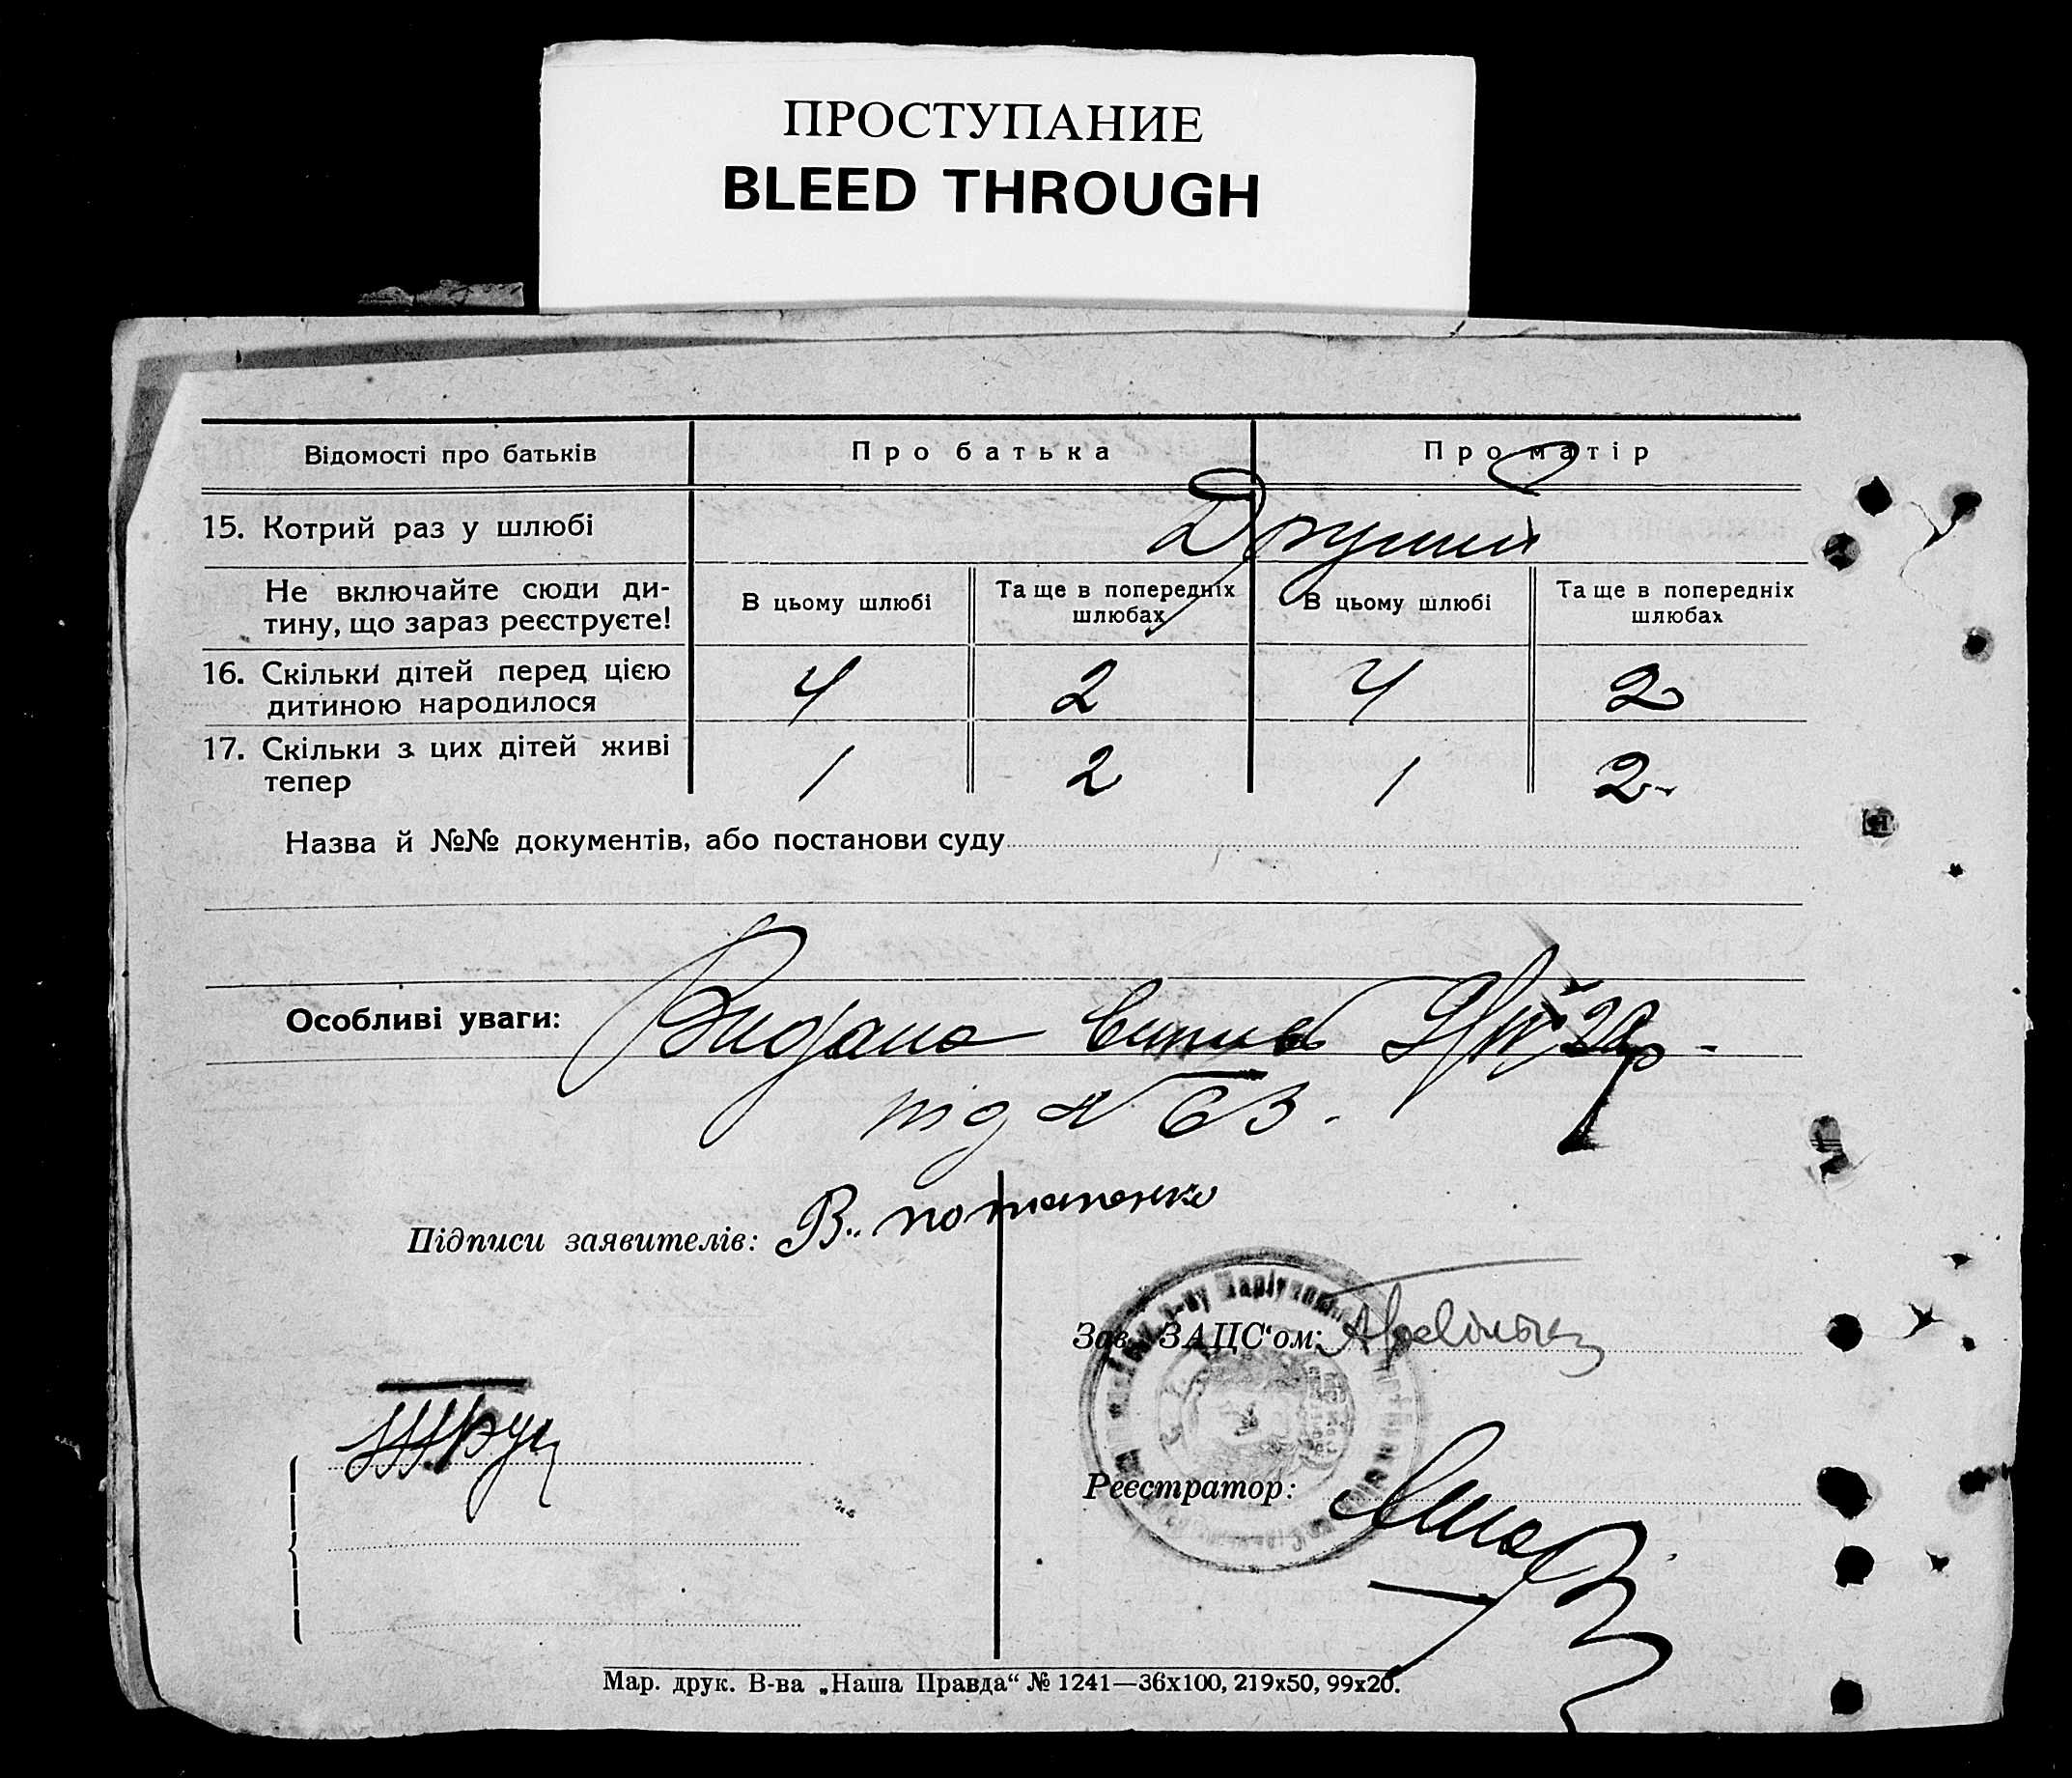 ПРОСТУПАНИЕ
BLEED THROUGH
Відомості про батьків
Про батька
Про матір
15. Котрий раз у шлюбі
Другий
Не включайте сюди ди-
тину, що зараз реєструєте!
В цьому шлюбі
Та ще в попередніх
шлюбах
В цьому шлюбі
Та ще в попередніх
шлюбах
16. Скільки дітей перед цією
дитиною народилося
4 2 4 2
17. Скільки з цих дітей живі
тепер
1 2 1 2
Назва й №№ документів, або постанови суду
Особливі уваги:
Видано
під № 63.
Підписи заявителів: В. потапенко
Зав. ЗАЦС‘ом:
Реєстратор:
Мар. друк. В-ва „Наша Правда“ № 1241—36х100, 219х50, 99х20.